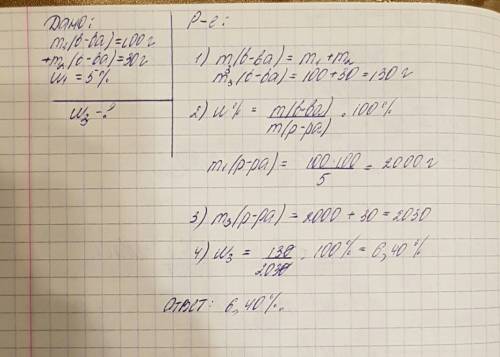 Дано:
m₁(в-ва)=100г
+m₂(в-ва)=30г
w₁ = 5%
w₃ - ?
Р-е:
1) m(в-ва) = m₁+m₂
m₃(в-ва) = 100+30 = 130г
2) w% = m(в-ва)/m(р-ра) · 100%
m₁(р-ра) = 100·100/5 = 2000 г
3) m₃(р-ра) = 2000 + 30 = 2030
4) w₃ = 130/2030 · 100% = 6,40%
Ответ: 6,40%.